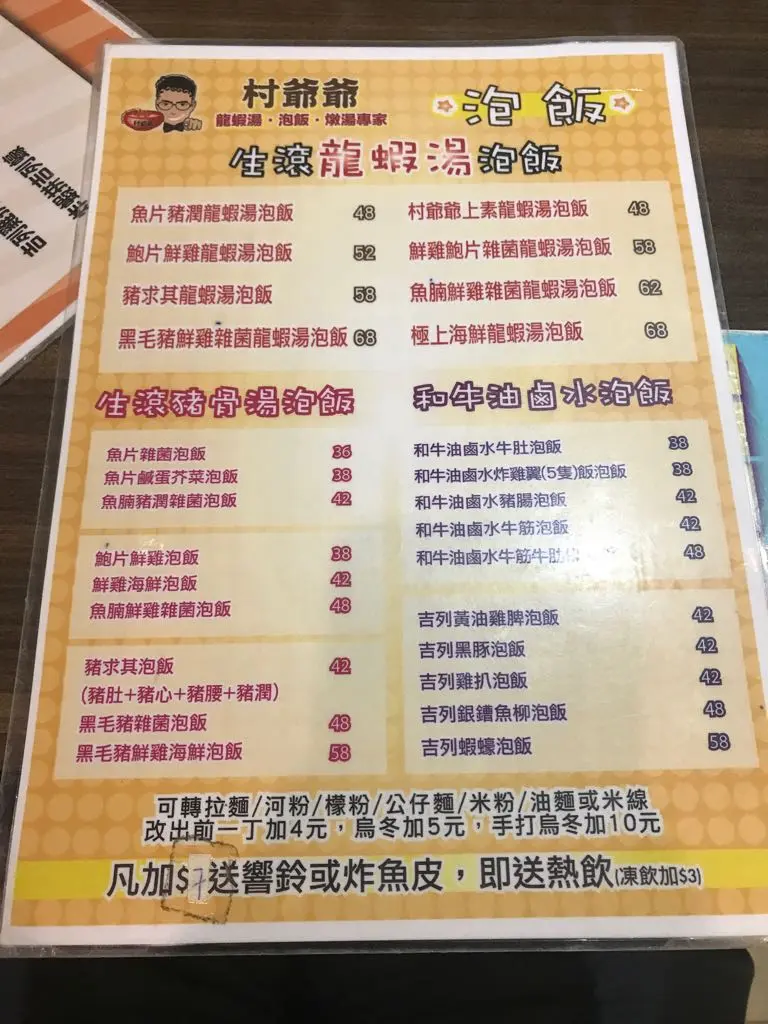 村爺爺
龍蝦湯·泡飯·燉湯專家
泡飯
生滾龍蝦湯泡飯
魚片豬潤龍蝦湯泡飯 48
鮑片鮮雞龍蝦湯泡飯 52
豬求其龍蝦湯泡飯 58
黑毛豬鮮雞雜菌龍蝦湯泡飯 68
村爺爺上素龍蝦湯泡飯 48
鮮雞鮑片雜菌龍蝦湯泡飯 58
魚腩鮮雞雜菌龍蝦湯泡飯 62
極上海鮮龍蝦湯泡飯 68
生滾豬骨湯泡飯
魚片雜菌泡飯 36
魚片鹹蛋芥菜泡飯 38
魚腩豬潤雜菌泡飯 42
鮑片鮮雞泡飯 38
鮮雞海鮮泡飯 42
魚腩鮮雞雜菌泡飯 48
豬求其泡飯 42
(豬肚+豬心+豬腰+豬潤)
黑毛豬雜菌泡飯 48
黑毛豬鮮雞海鮮泡飯 58
和牛油鹵水泡飯
和牛油鹵水牛肚泡飯 38
和牛油鹵水炸雞翼(5隻)飯泡飯 38
和牛油鹵水豬腸泡飯 42
和牛油鹵水牛筋泡飯 42
和牛油鹵水牛筋牛肋 48
吉列黃油雞脾泡飯 42
吉列黑豚泡飯 42
吉列雞扒泡飯 42
吉列銀鱈魚柳泡飯 48
吉列蝦蠔泡飯 58
可轉拉麵/河粉/檬粉/公仔麵/米粉/油麵或米線
改出前一丁加4元，烏冬加5元，手打烏冬加10元
凡加$7送響鈴或炸魚皮，即送熱飲(凍飲加$3)